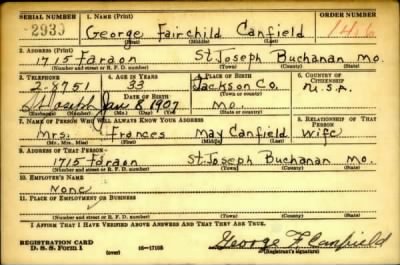 SERIAL NUMBER 1. NAME (Print) ORDER NUMBER
2930 George Fairchild Canfield
(First) (Middle) (Last)
2. ADDRESS (Print)
1715 Faraon St. Joseph Buchanan Mo.
(Number and street or R. F. D. number) (Town) (County) (State)
3. TELEPHONE 4. AGE IN YEARS 5. PLACE OF BIRTH 6. COUNTRY OF CITIZENSHIP
2-8751 33 Jackson Co. U.S.A.
DATE OF BIRTH (Town or county)
St Joseph Jan 8 1907 Mo.
(Exchange) (Number) (Mo.) (Day) (Yr.) (State or country)
7. NAME OF PERSON WHO WILL ALWAYS KNOW YOUR ADDRESS 8. RELATIONSHIP OF THAT PERSON
Mrs. Frances May Canfield Wife
(Mr., Mrs., Miss) (First) (Middle) (Last)
9. ADDRESS OF THAT PERSON
1715 Faraon St. Joseph Buchanan Mo.
(Number and street or R. F. D. number) (Town) (County) (State)
10. EMPLOYER'S NAME
None
11. PLACE OF EMPLOYMENT OR BUSINESS
(Number and street or R. F. D. number) (Town) (County) (State)
I AFFIRM THAT I HAVE VERIFIED ABOVE ANSWERS AND THAT THEY ARE TRUE.
REGISTRATION CARD
D. S. S. Form 1 (over) 16-17105 George F Canfield
(Registrant's signature)